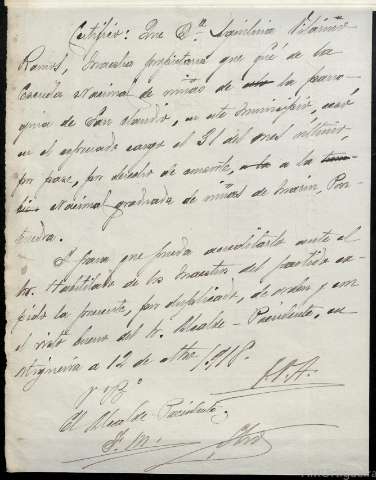 Certifico: Que Dª
Ramos, Maestra propietaria que fué de la
Escuela Nacional de niñas de la parro-
quia de San Claudio, en este Municipio, cesó
en el expresado cargo el 31 del mes último,
por pase, por derecho de consorte, a la
Nacional graduada de niñas de Marín, Pon-
tevedra.
Y para que pueda acreditarlo ante el
Sr. Habilitado de los Maestros del partido ex-
pido la presente, por duplicado, de orden y con
el visto bueno del Sr. Alcalde-Presidente, en
Ortigueira a 12 de 1,918.
Vº Bº
El Alcalde Presidente,